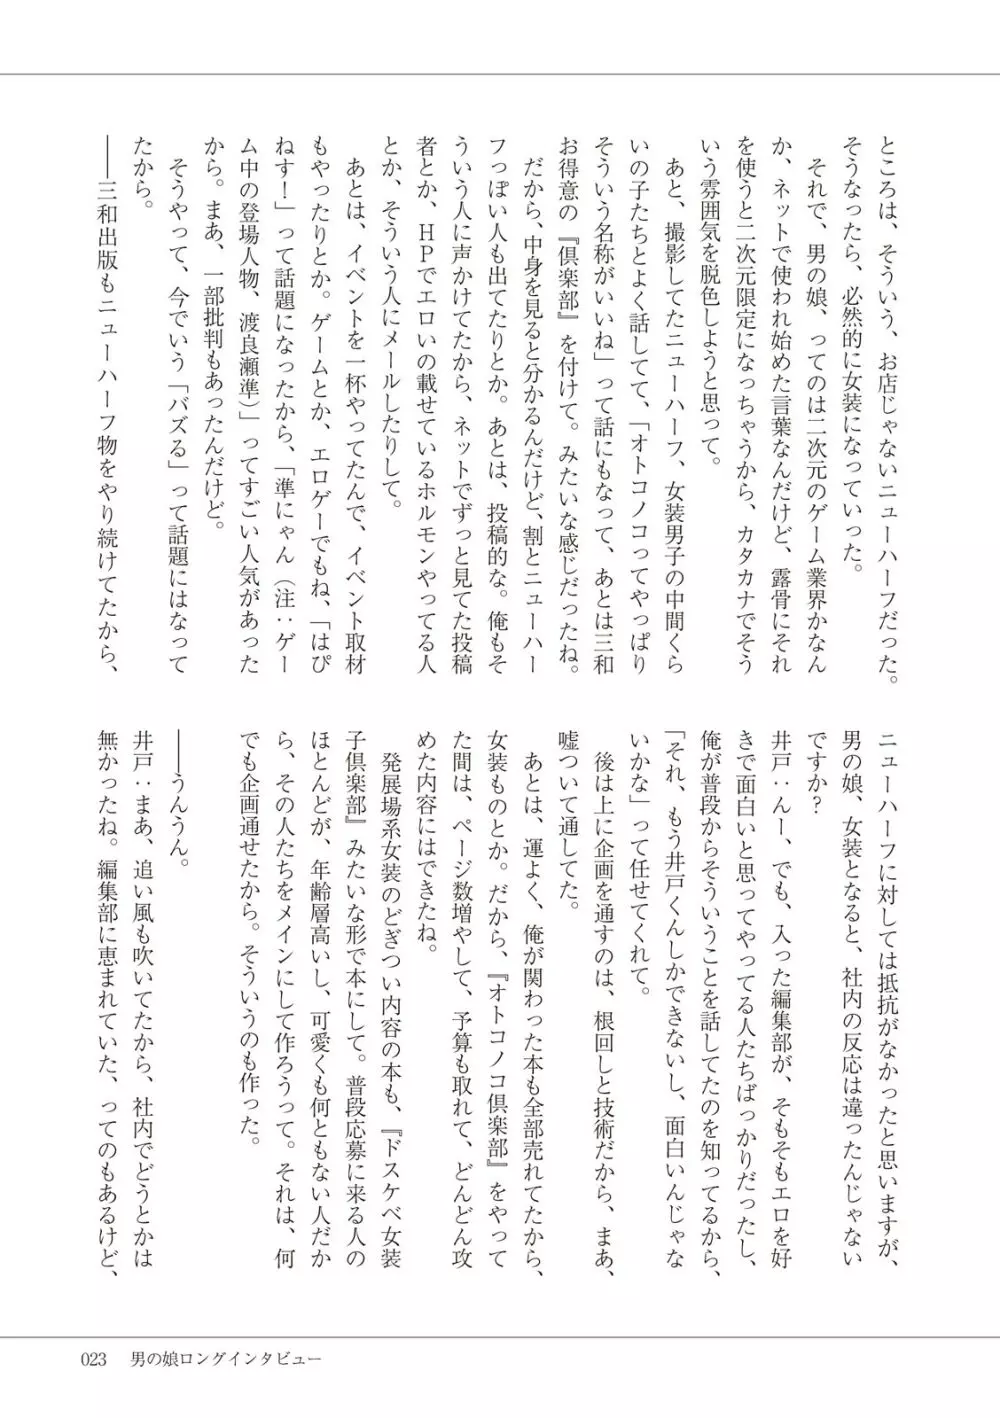 ところは、そういう、お店じゃないニューハーフだった。
そうなったら、必然的に女装になっていった。
　それで、男の娘、ってのは二次元のゲーム業界かなん
か、ネットで使われ始めた言葉なんだけど、露骨にそれ
を使うと二次元限定になっちゃうから、カタカナでそう
いう雰囲気を脱色しようと思って。
　あと、撮影してたニューハーフ、女装男子の中間くら
いの子たちとよく話してて、「オトコノコってやっぱり
そういう名称がいいね」って話にもなって、あとは三和
お得意の『倶楽部』を付けて。みたいな感じだったね。
　だから、中身を見ると分かるんだけど、割とニューハー
フっぽい人も出てたりとか。あとは、投稿的な。俺もそ
ういう人に声かけてたから、ネットでずっと見てた投稿
者とか、ＨＰでエロいの載せているホルモンやってる人
とか、そういう人にメールしたりして。
　あとは、イベントを一杯やってたんで、イベント取材
もやったりとか。ゲームとか、エロゲーでもね、「はぴ
ねす！」って話題になったから、「準にゃん（注：ゲー
ム中の登場人物、渡良瀬準）」ってすごい人気があった
から。まあ、一部批判もあったんだけど。
　そうやって、今でいう「バズる」って話題にはなって
たから。
――三和出版もニューハーフ物をやり続けてたから、
ニューハーフに対しては抵抗がなかったと思いますが、
男の娘、女装となると、社内の反応は違ったんじゃない
ですか？
井戸：んー、でも、入った編集部が、そもそもエロを好
きで面白いと思ってやってる人たちばっかりだったし、
俺が普段からそういうことを話してたのを知ってるから、
「それ、もう井戸くんしかできないし、面白いんじゃな
いかな」って任せてくれて。
　後は上に企画を通すのは、根回しと技術だから、まあ、
嘘ついて通してた。
　あとは、運よく、俺が関わった本も全部売れてたから、
女装ものとか。だから、『オトコノコ倶楽部』をやって
た間は、ページ数増やして、予算も取れて、どんどん攻
めた内容にはできたね。
　発展場系女装のどぎつい内容の本も、『ドスケベ女装
子倶楽部』みたいな形で本にして。普段応募に来る人の
ほとんどが、年齢層高いし、可愛くも何ともない人だか
ら、その人たちをメインにして作ろうって。それは、何
でも企画通せたから。そういうのも作った。
――うんうん。
井戸：まあ、追い風も吹いてたから、社内でどうとかは
無かったね。編集部に恵まれていた、ってのもあるけど、
023　男の娘ロングインタビュー